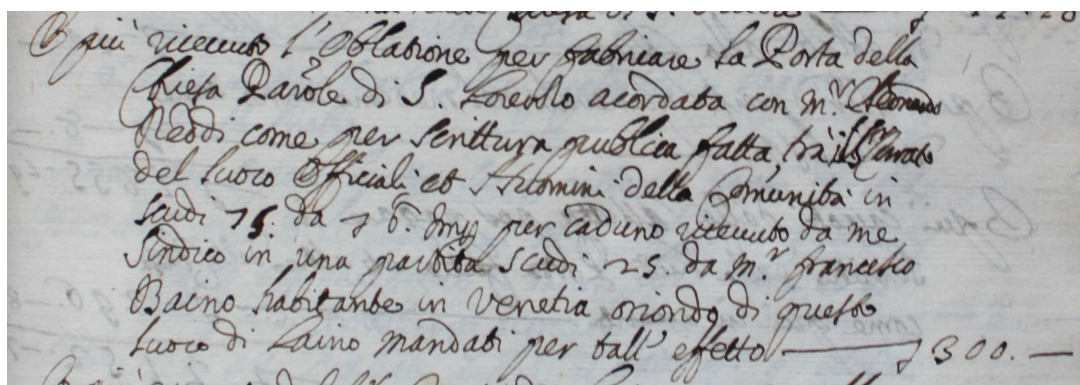 E più riceuuto l'Oblatione per fabricare la Porta della
Chiesa Paro.le di S. Lorenzo acordata con m.r Leonardo
Reddi come per scrittura publica fatta trà il Sr Curato
del luoco Officiali et Huomini della Comunità in
scudi 75. da per caduno riceuuto da me
Sindico in una partita scudi 25. da m.r francesco
Baino habitante in Venetia oriondo di questo
luoco di Laino mandati per tall' effetto — 300. —